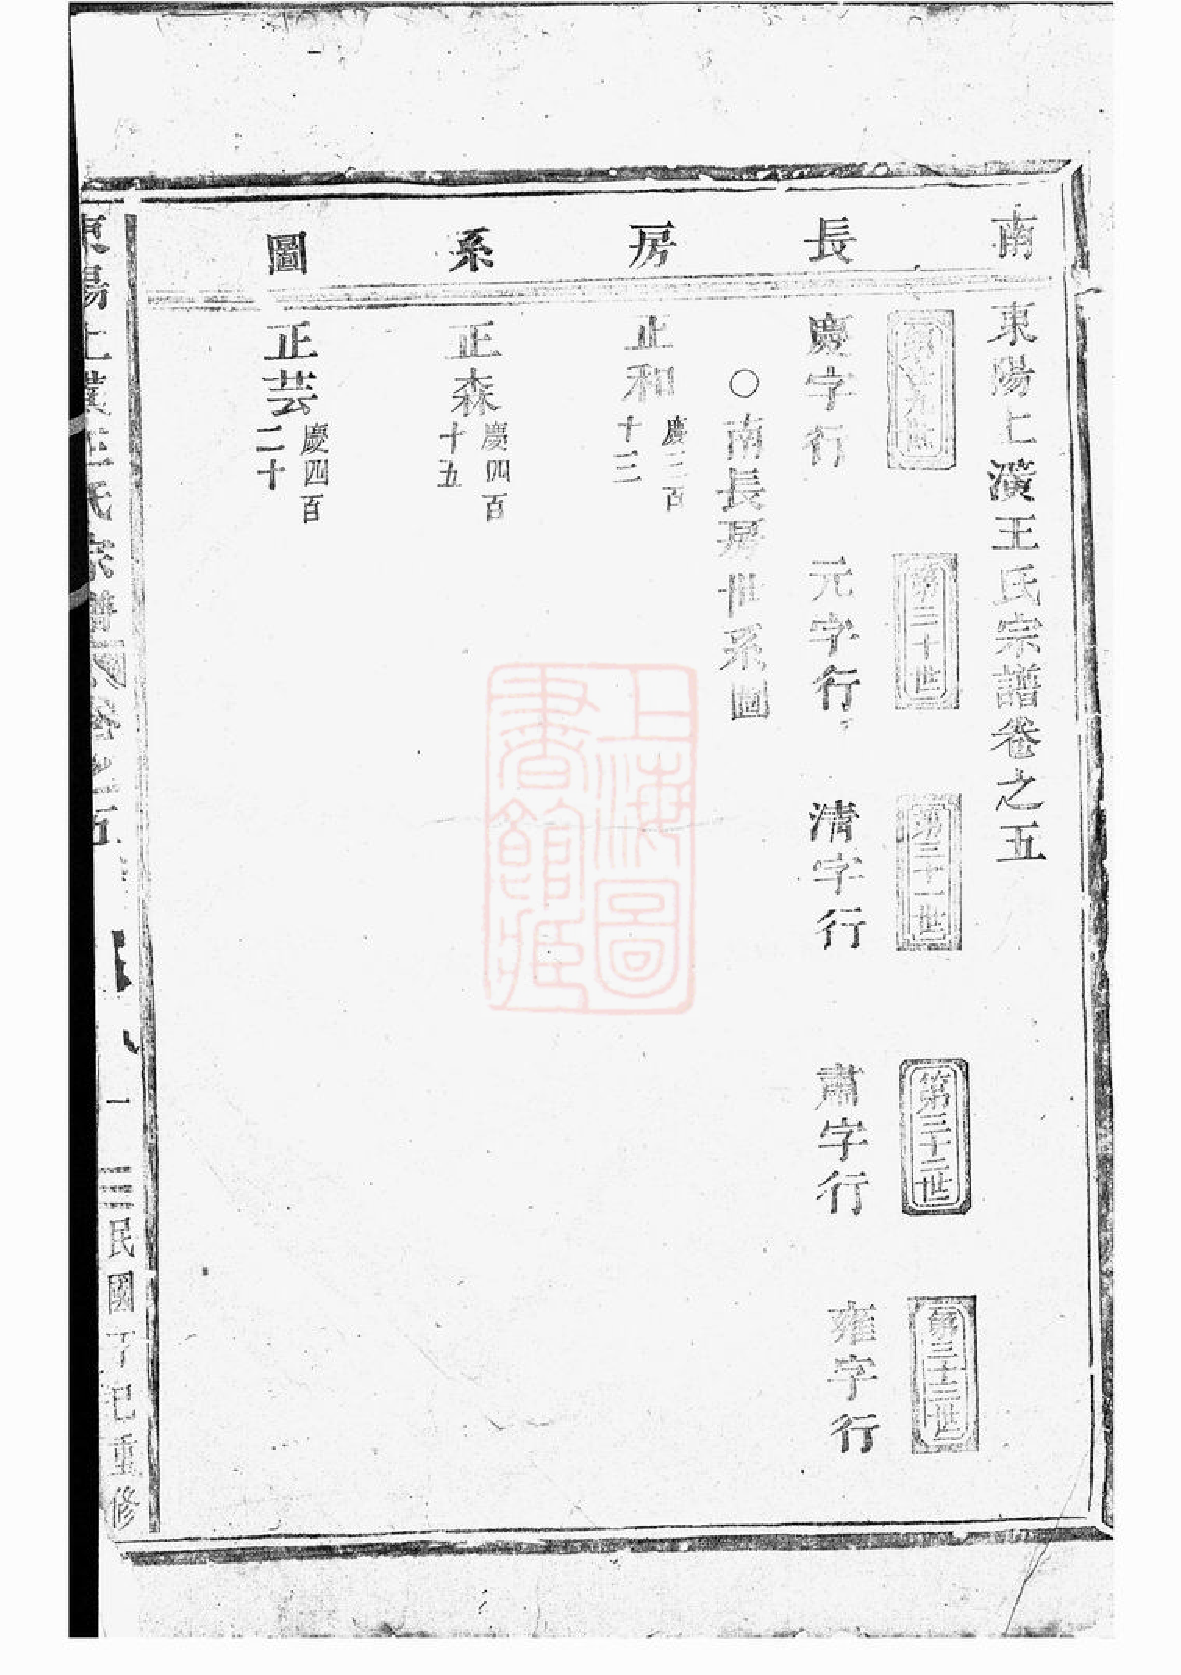 南長房系圖
東陽上潢王氏宗譜卷之五
第十九世
第二十世
第二十一世
第二十二世
第二十三世
慶字行
元字行
清字行
肅字行
雍字行
○南長房世系圖
正和 慶三百十三
正森 慶四百十五
正芸 慶四百二十
東陽上潢王氏宗譜
一
民國丁巳重修
上海圖書館藏